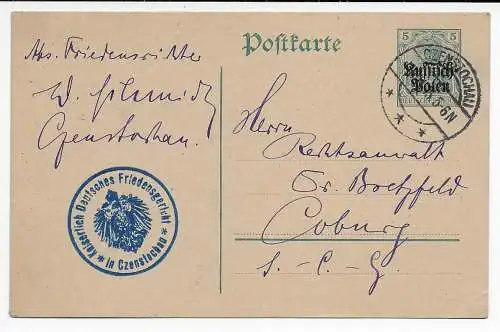 Postkarte
5
Russisch-
Polen
CZENSTOCHAU
Abs. Friedensrichter
W. Schmidt
Czenstochau.
Herrn
Rechtsanwalt
Dr.
Coburg
S.-C.-G.
Kaiserlich Deutsches Friedensgericht
* in Czenstochau *